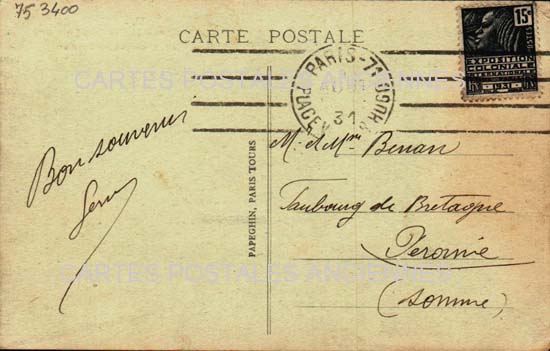 75 3400
CARTE POSTALE
15c
EXPOSITION
COLONIALE
INTERNATIONALE
1931
PARIS-71
31
PLACE V. HUGO
CARTES POSTALES ANCIENNES
Bon souvenir
M. et Mme Benan
PAPEGHIN, PARIS TOURS
Faubourg de Bretagne
Peronne
CARTES POSTALES ANCIENNES
(Somme)